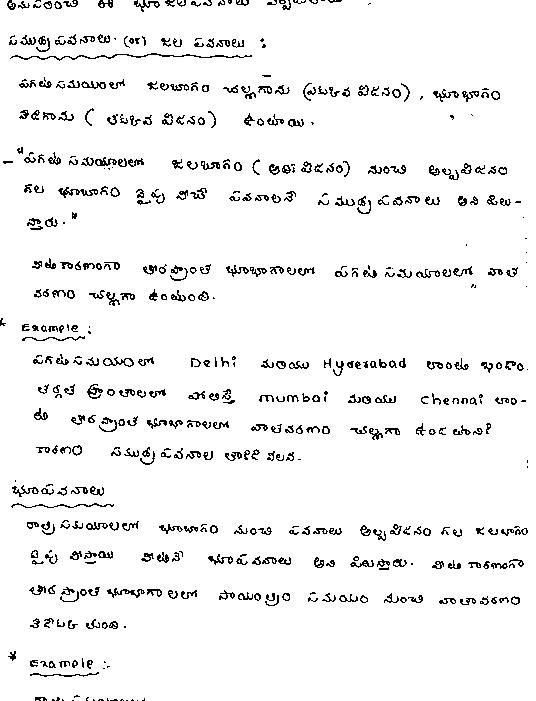 సముద్ర పవనాలు (or) జల పవనాలు :
పగటి సమయంలో జలభాగం చల్లగాను (అధిక పీడనం), భూభాగం
వేడిగాను ( తక్కువ పీడనం) ఉంటాయి.
"పగటి సమయాలలో జలభాగం ( అధిక పీడనం) నుంచి అల్పపీడనం
గల భూభాగం వైపు వీచే పవనాలనే సముద్ర పవనాలు అని పిలు-
స్తారు."
వీటి కారణంగా తీరప్రాంత భూభాగాలలో పగటి సమయాలలో వాతా
వరణం చల్లగా ఉంటుంది.
* Example :
పగటి సమయంలో Delhi మరియు Hyderabad లాంటి ఖండాం
తర్గత ప్రాంతాలలో పోలిస్తే mumbai మరియు Chennai లాం-
టి తీరప్రాంత భూభాగాలలో వాతావరణం చల్లగా ఉండటానికి
కారణం సముద్ర పవనాల తాకిడి వలన.
భూపవనాలు
రాత్రి సమయాలలో భూభాగం నుంచి పవనాలు అల్పపీడనం గల జలభాగం
వైపు వీస్తాయి వీటినే భూపవనాలు అని పిలుస్తారు. వీటి కారణంగా
తీరప్రాంత భూభాగాలలో సాయంత్రం సమయం నుంచి వాతావరణం
* Example :-